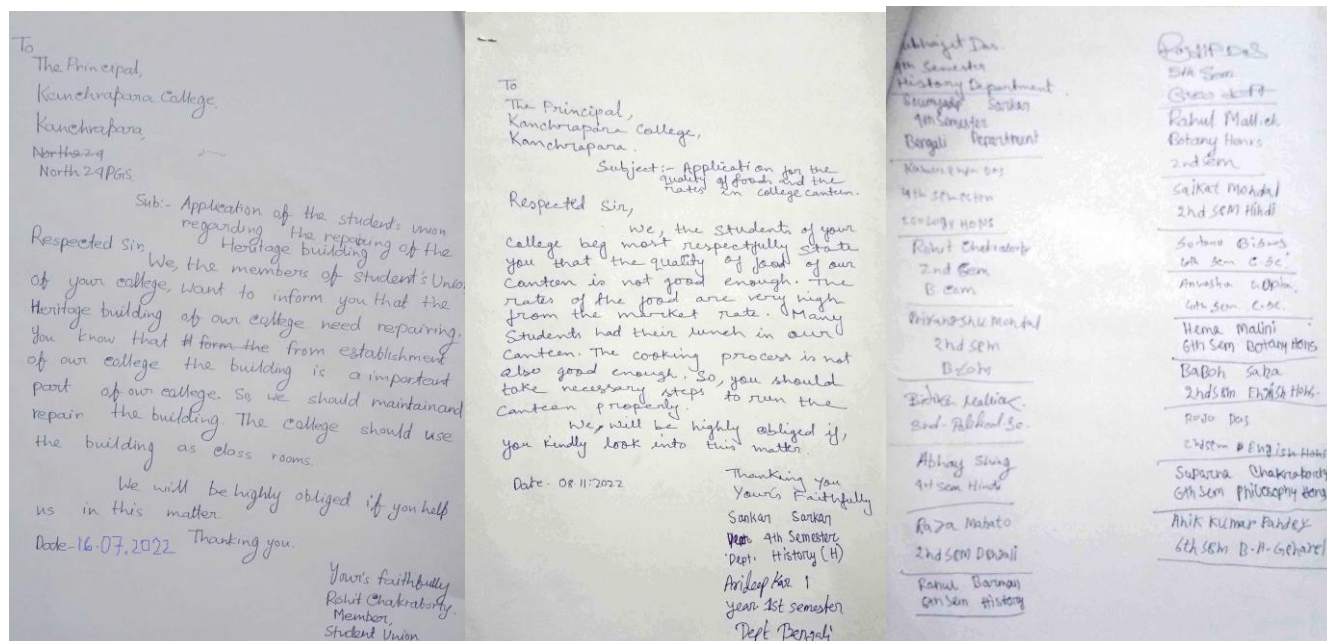 To
The Principal,
Kanchrapara College,
Kanchrapara,
North 24
North 24PGS
Sub:- Application of the student's union
regarding the repairing of the
Heritage building
Respected Sir,
We, the members of student's Union
of your college, want to inform you that the
Heritage building of our college need repairing.
You know that form the from establishment
of our college the building is a important
part of our college. So we should maintain and
repair the building. The college should use
the building as class rooms.
We will be highly obliged if you help
us in this matter.
Date-16.07.2022 Thanking you.
Your's faithfully
Rohit Chakraborty.
Member,
Student Union
To
The Principal,
Kanchrapara College,
Kanchrapara.
Subject:- Application for the
quality of foods and the
rates in college canteen.
Respected Sir,
We, the students of your
college beg most respectfully state
you that the quality of food of our
canteen is not good enough. The
rates of the food are very high
from the market rate. Many
Students had their lunch in our
canteen. The cooking process is not
also good enough. So, you should
take necessary steps to run the
canteen properly.
We, will be highly obliged if,
you kindly look into this matter.
Date- 08.11.2022
Thanking you
Your's Faithfully
Sankar Sarkar
Dept 4th Semester
Dept. History (H)
Arideep Kar 1
year 1st semester
Dept Bengali
Das.
4th Semester
History Department
Soumyadip Sarkar
4th Semester
Bengali Department
Das
4th semester
Zoology HONS
Rohit Chakraborty
2nd Sem
B.com
Priyanshu Mondal
2nd sem
B.com
Mallick
Abhay Shing
4rt Sem Hindi
Raja Mahato
2nd SEM
Rahul Barman
6th Sem History
Das
5th Sem
Rahul Mallick
Botany Honrs
2nd sem
Saikat Mondal
2nd SEM Hindi
Biswas
6th Sem C.Sc
Anwasha
6th Sem C.Sc.
Hema Malini
6th Sem Botany Hons
Saha
2nd Sem English Hons.
Rojo Das
2nd sem English Hons
Suparna Chakraborty
6th Sem Philosophy Hons
Anik Kumar Pandey
6th SEM B.A-General